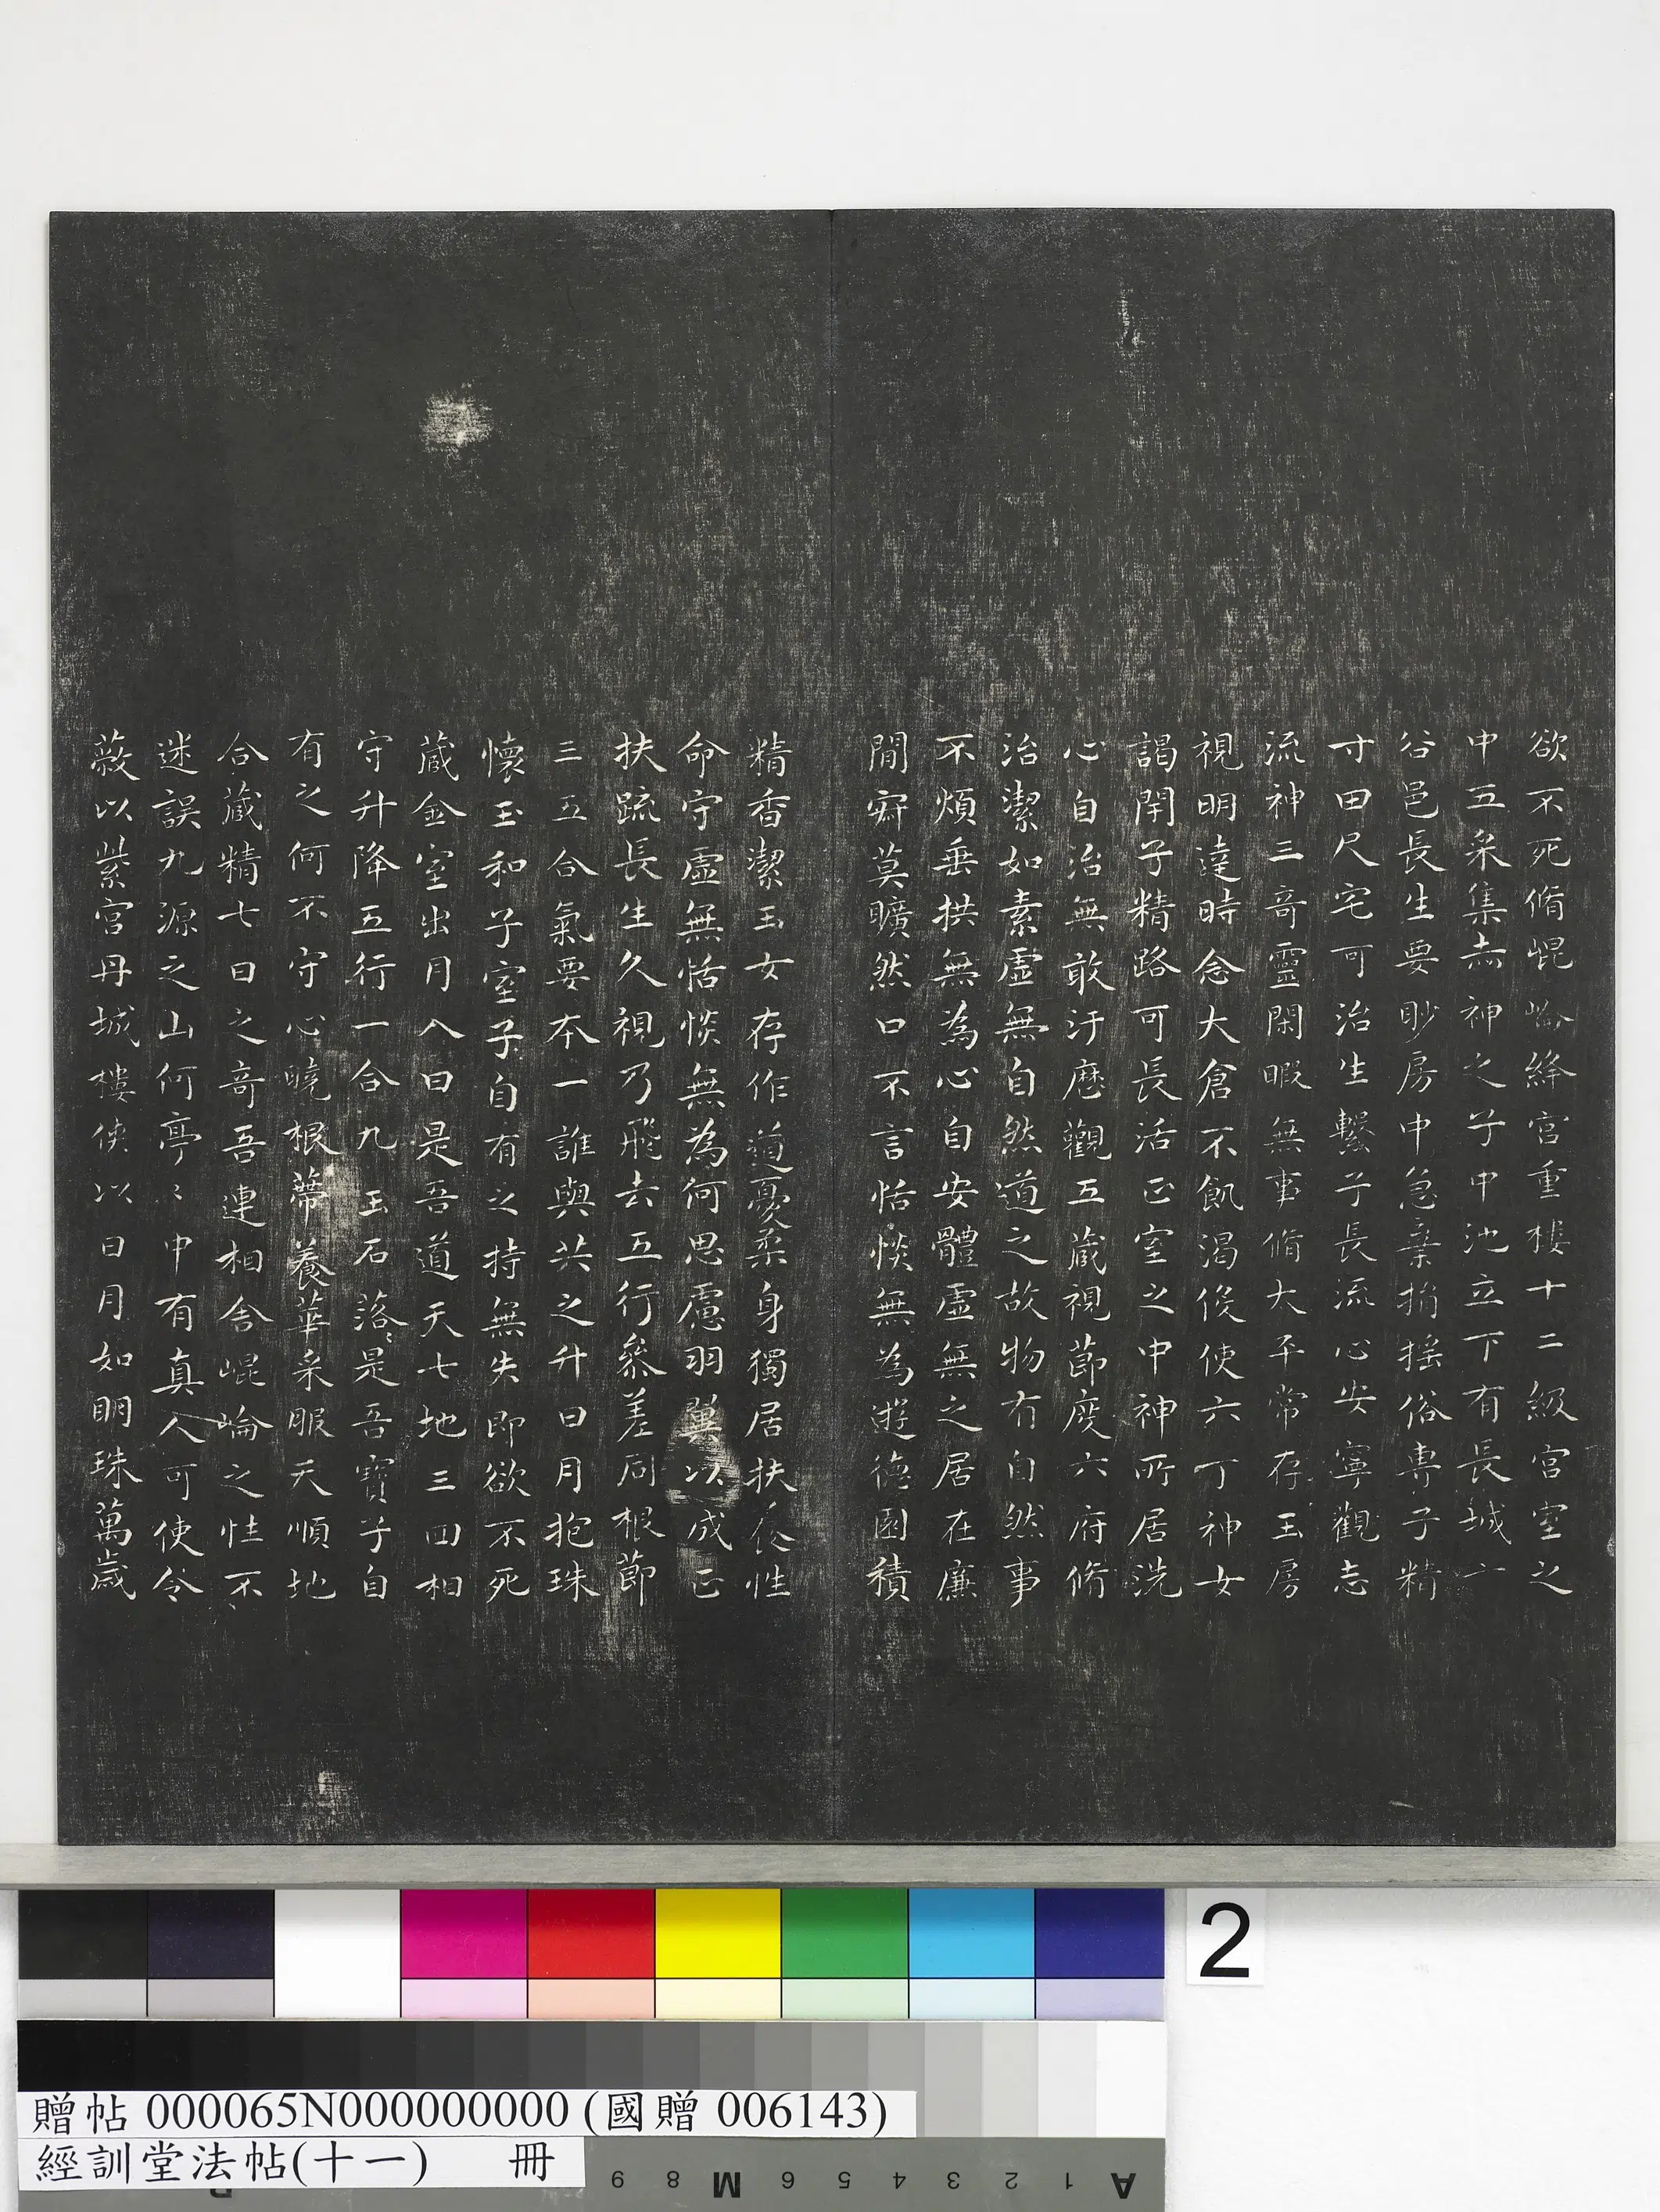 欲不死脩崐崘絳宮重樓十二級宮室之
中五采集赤神之子中池立下有長城六
谷邑長生要眇房中急棄捐搖俗專子精
寸田尺宅可治生繫子長流心安寧觀志
流神三竒靈閑暇無事脩太平常存玉房
視明達時念大倉不飢渴役使六丁神女
謁閇子精路可長活正室之中神所居洗
心自治無敢汙歷觀五藏視節度六府脩
治潔如素虛無自然道之故物有自然事
不煩垂拱無為心自安體虛無之居在廉
間寂莫曠然口不言恬惔無為遊德園積
精香潔玉女存作道憂柔身獨居扶養性
命守虛無恬惔無為何思慮羽翼以成正
扶疏長生久視乃飛去五行參差同根節
三五合氣要本一誰與共之升日月抱珠
懷玉和子室子自有之持無失即欲不死
藏金室出月入日是吾道天七地三回相
守升降五行一合九玉石落〻是吾寶子自
有之何不守心曉根蔕養華采服天順地
合藏精七日之竒吾連相舍崐崘之性不
迷誤九源之山何亭〻中有真人可使令
蔽以紫宮丹城樓俠以日月如明珠萬歲
2
贈帖 000065N000000000 (國贈 006143)
經訓堂法帖(十一) 冊
9 8 M 6 5 4 3 2 1 A